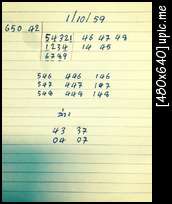 1/10/59
650 42
54321 46 47 48
1234 14 45
6789
546 446 146
547 447 147
548 448 148
43 37
04 07
[480x640] upic.me